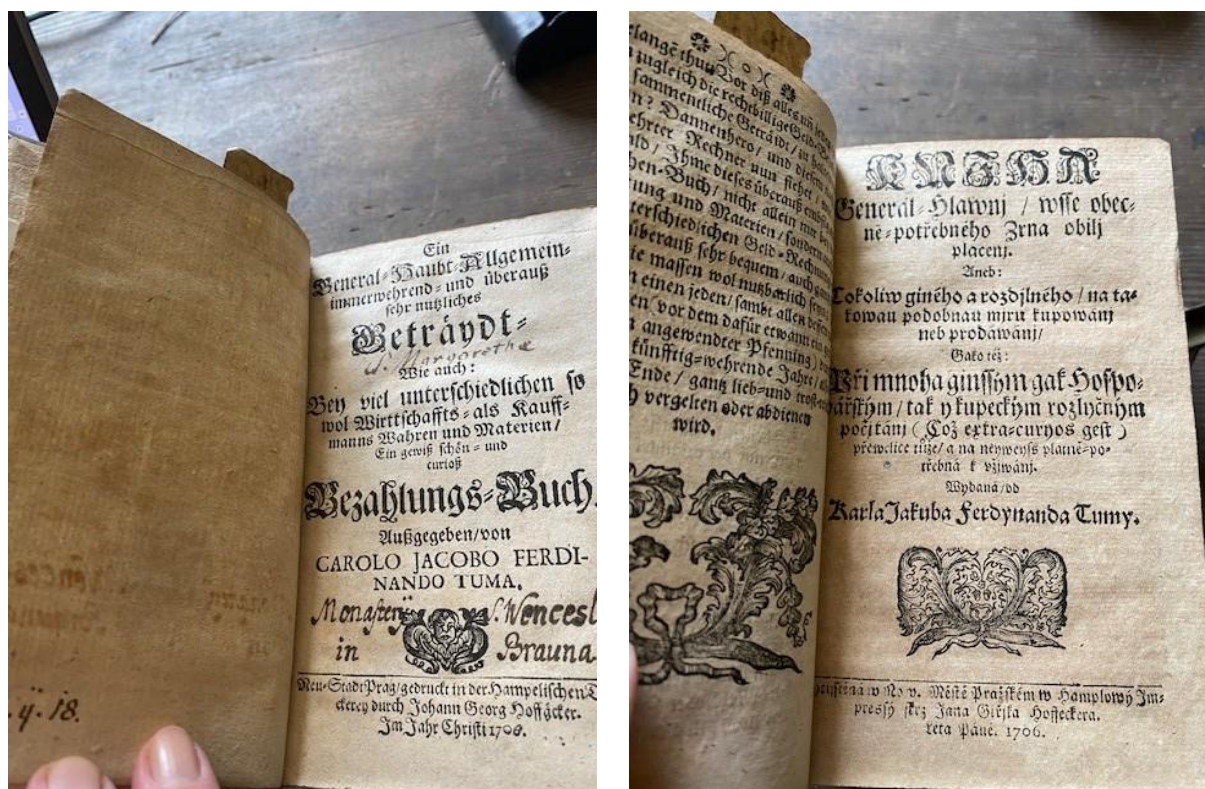 Ein
General-Haubt-Allgemein-
immerwehrend- und überauß
sehr nutzliches
Geträydt-
S. Margarethæ
Wie auch:
Bey viel unterschiedlichen so
wol Wirttschaffts- als Kauff-
manns Wahren und Materien/
Ein gewiß schön- und
curioß
Bezahlungs-Buch.
Außgegeben/von
CAROLO JACOBO FERDI-
NANDO TUMA.
Monasterij S. Wencesl
in Brauna
Neu-Stadt Prag/gedruckt in der Hampelischen
ckerey durch Johann Georg Hoffäcker.
Im Jahr Christi
.y. 18.
langẽ thut? Vor diß alles uñ
zugleich die rechtbillige Geld-
sammentliche Geträidt/ zu
n? Dannenhero/ und
ehrter Rechner nun siehet/
ald/ Ihme dieses überauß
hen-Buch/ nicht allein nur
tung und Materien/ sondern
terschiedlichen Geld-Rechnun
überauß sehr bequem/ auch
ie massen wol nutzbarlich
n einen jeden/ sambt allen
en (vor dem dafür etwann
angewendter Pfenning)
künfftig-wehrende Jahre/
Ende/ gantz lieb-und trost-
h vergelten oder abdienen
wird.
KNJHA
General-Hlawnj / wsse obec-
ně-potřebného Zrna obilj
placenj.
Aneb:
Cokoliw giného a rozdjlného / na ta-
kowau podobnau mjru kupowánj
neb prodáwánj/
Gako též:
Při mnoha ginssým gak Hospo-
dářským / tak y kupeckým rozlyčným
počjtánj (Což extra-curyos gest)
přewelice tůze/ a na neyweyss platně-po-
třebná k vžjwánj.
Wydaná/od
Karla Jakuba Ferdynanda Tumy.
w No v. Městě Pražském w Hamplowý Im-
pressy skrz Jana Giřjka Hoffeckera.
Leta Páně. 1706.